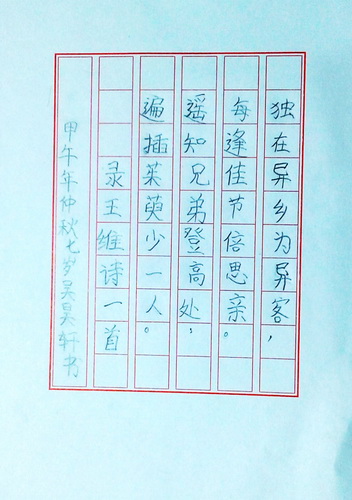 独在异乡为异客，
每逢佳节倍思亲。
遥知兄弟登高处，
遍插茱萸少一人。
录王维诗一首
甲午年仲秋七岁吴昊轩书